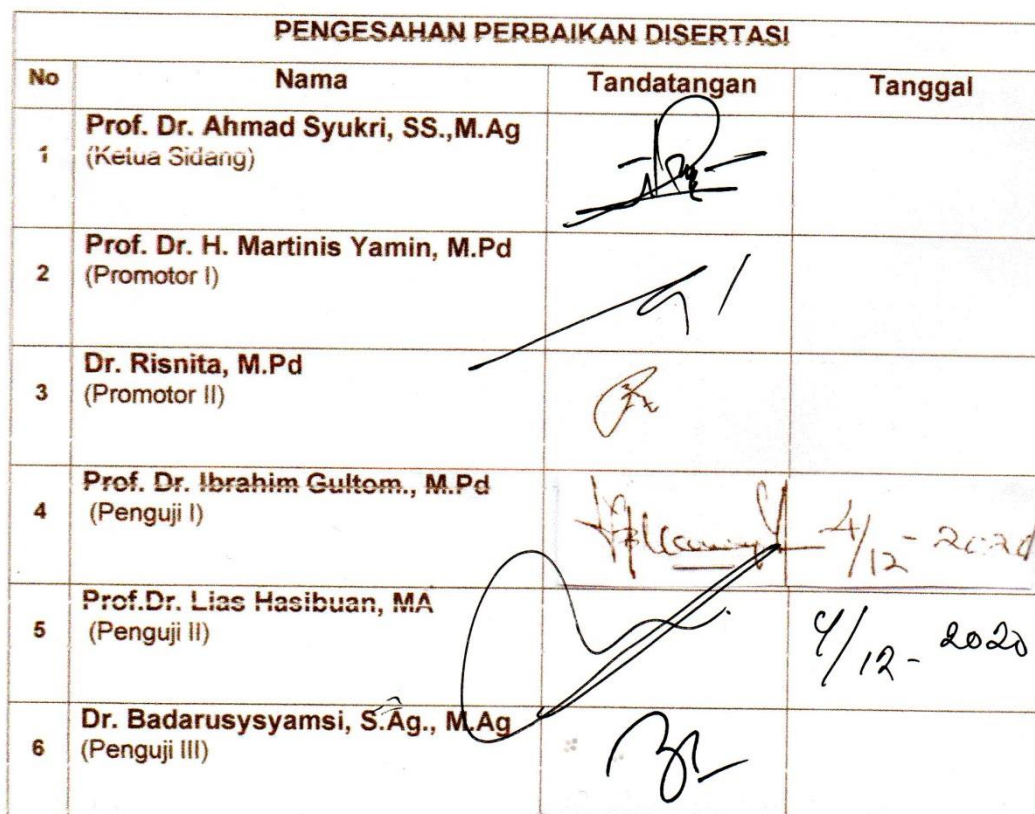 PENGESAHAN PERBAIKAN DISERTASI
No Nama Tandatangan Tanggal
1 Prof. Dr. Ahmad Syukri, SS.,M.Ag
(Ketua Sidang)
2 Prof. Dr. H. Martinis Yamin, M.Pd
(Promotor I)
3 Dr. Risnita, M.Pd
(Promotor II)
4 Prof. Dr. Ibrahim Gultom., M.Pd
(Penguji I)
4/12 - 2020
5 Prof.Dr. Lias Hasibuan, MA
(Penguji II)
4/12 - 2020
6 Dr. Badarusysyamsi, S.Ag., M.Ag
(Penguji III)